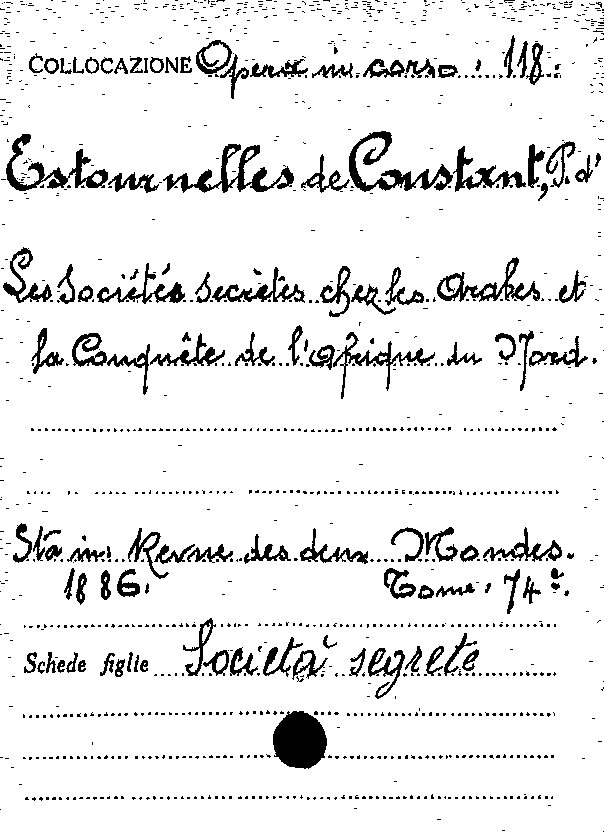 COLLOCAZIONE Opera in corso. 118.
Estournelles de Constant, P. d'
Les Sociétés secrètes chez les Arabes et
la Conquête de l'Afrique du Nord.
Sta in: Revue des deux Mondes.
1886. Tome. 74e.
Schede figlie Società segrete